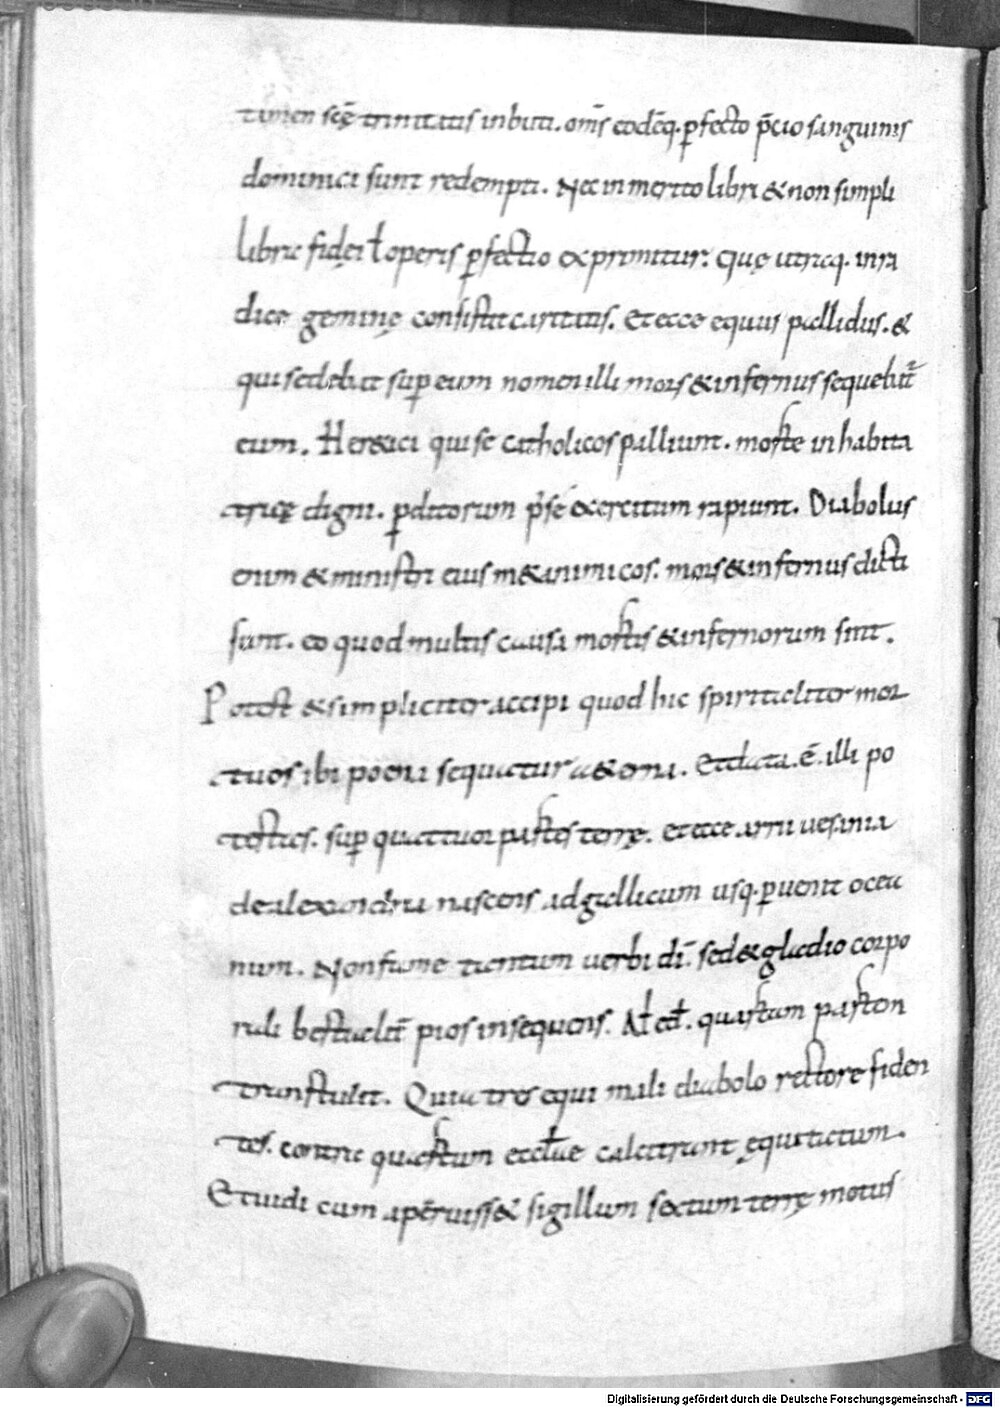 tamen scę trinitatis inbuti. oms̄ eodēq. ꝑfecto p̄cio sanguinis
dominici sunt redempti. Nec inmerito libri & non simpli
libris fidei ł operis ꝑfectio exprimitur. Quę utraq. inra
dice geminę consistit caritatis. Et ecce equus pallidus. &
qui sedebat suꝑ eum nomen illi mors & infernus sequebat᷑
eum. Her&ici qui se catholicos palliunt. morte inhabita
tricę digni. ꝑditorum p̄ se exercitum rapiunt. Diabolus
enim & ministri eius m&animicos. mors & infernus dicti
sunt. eo quod multis causa mortis & infernorum sint.
Potest & simpliciter accipi quod hic spiritaliter mor
tuos ibi poena sequatur a&erna. Et data. ē. illi po
testas. suꝑ quattuor partes terrę. et ecce arrii uesania
de alexandria nascens ad gallicum usq. ꝑuenit ocea
num. Non fame tantum uerbi dī. sed & gladio corpo
rali bestialit̄ pios insequens. Al ed. quartam partem
transtulit. Quia tres equi mali diabolo rectore fiden
tes. contra quartum eccłae calcitrant ęquitatum.
Et uidi cum aperuiss& sigillum sextum terrę motus
Digitalisierung gefördert durch die Deutsche Forschungsgemeinschaft - DFG